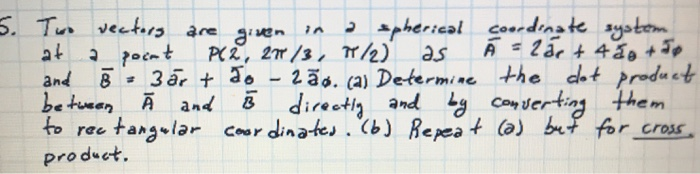 5. Two vectors are given in a spherical coordinate system
at a point P(2, 2π/3, π/2) as Ā = 2ār + 4āθ + āφ
and B̄ = 3ār + āθ - 2āφ. (a) Determine the dot product
between Ā and B̄ directly and by converting them
to rectangular coordinates. (b) Repeat (a) but for cross
product.